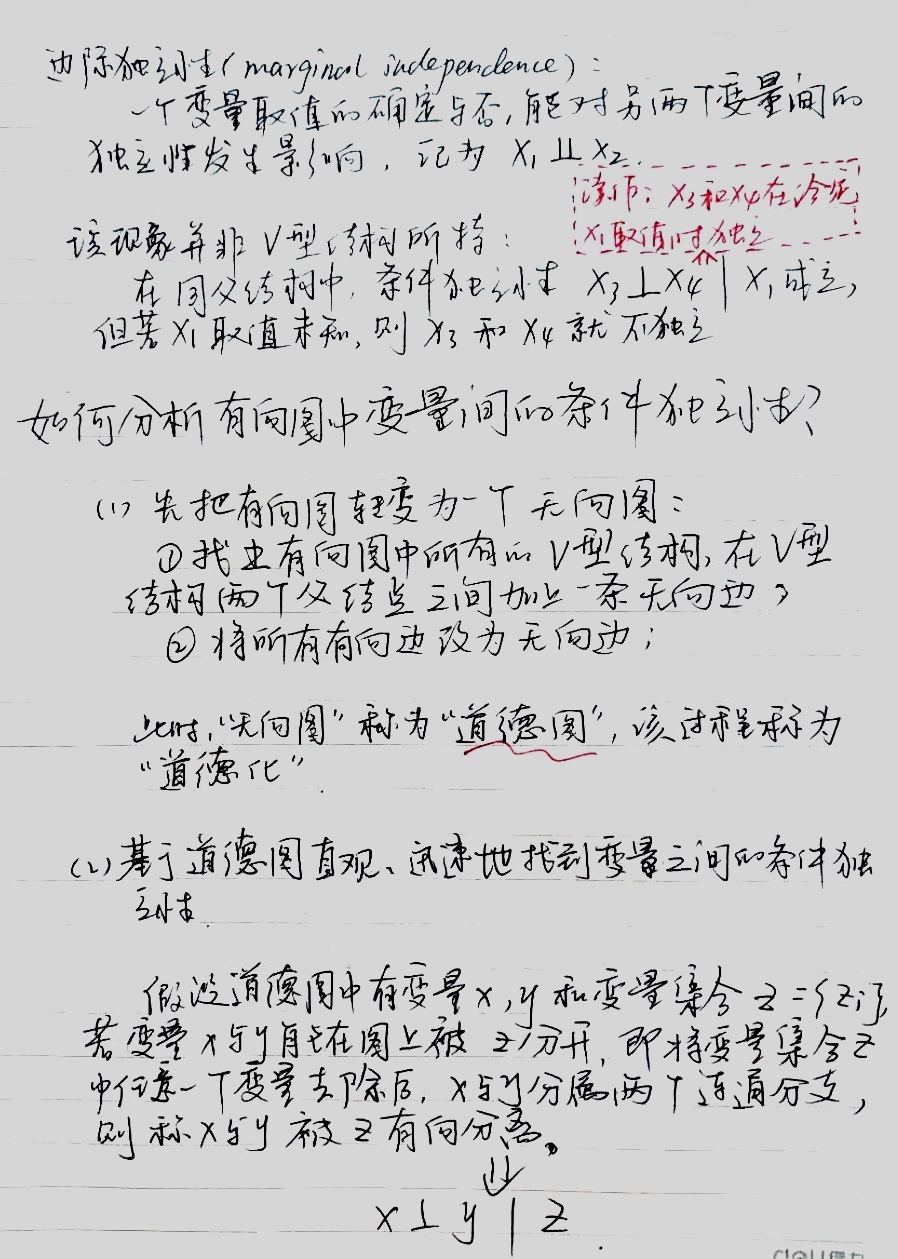 边际独立性(marginal independence):
一个变量取值的确定与否,能对另两个变量间的
独立性发生影响,记为 X₁⫫X₂.
读作: X₃和X₄在给定
X₁取值时独立
该现象并非V型结构所特:
在同父结构中,条件独立性 X₃⊥X₄ | X₁成立,
但若X₁取值未知,则X₃和X₄就不独立
如何分析有向图中变量间的条件独立性?
(1) 先把有向图转变为一个无向图:
①找出有向图中所有的V型结构,在V型
结构两个父结点之间加上一条无向边;
②将所有有向边改为无向边;
此时,"无向图"称为"道德图",该过程称为
"道德化"
(2)基于道德图直观、迅速地找到变量之间的条件独
立性
假设道德图中有变量x,y和变量集合 z={zi},
若变量x与y能在图上被z分开,即将变量集合z
中任意一个变量去除后,x与y分属两个连通分支,
则称x与y被z有向分离。
⇓
x⊥y | z